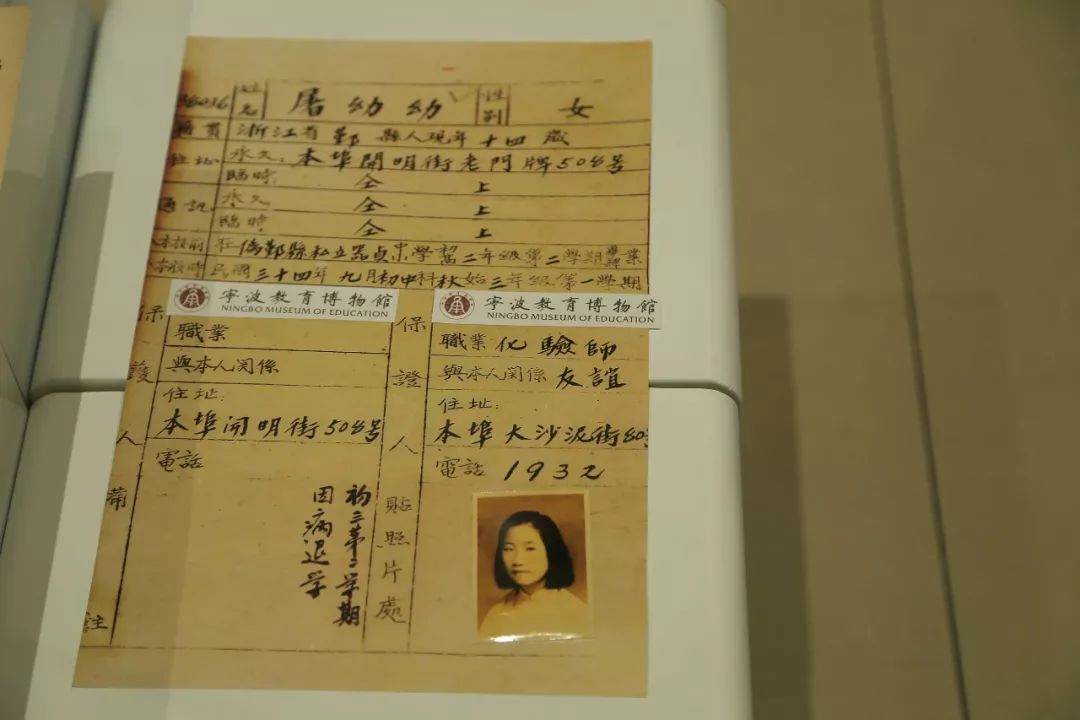 姓名 屠幼幼 性別 女
籍貫 浙江省鄞縣人現年十四歲
住址 永久：本埠開明街老門牌508号
臨時 仝上
通訊 永久 仝上
臨時 仝上
在 鄞縣私立器貞中學初二年級第二學期
民國三十四年九月初中科秋始三年級第一學期
寧波教育博物館
NINGBO MUSEUM OF EDUCATION
寧波教育博物館
NINGBO MUSEUM OF EDUCATION
保護人
職業
與本人関係
住址：
本埠開明街508号
電話
保證人
職業 化驗師
與本人関係 友誼
住址：
本埠大沙泥街
電話 1932
備註
初三第二学期
因病退学
貼照片處